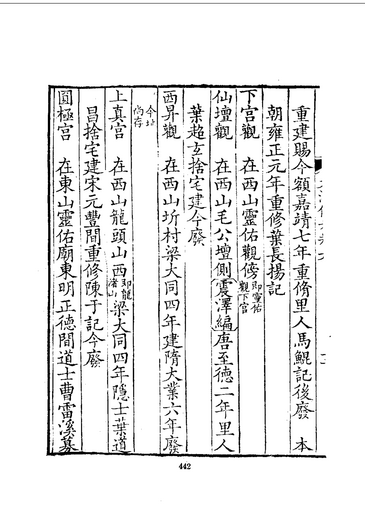 重建賜今額嘉靖七年重脩里人馬鯤記後廢　本
朝雍正元年重修葉長揚記
下宮觀　在西山靈佑觀傍即靈佑觀下宮
仙壇觀　在西山毛公壇側震澤編唐至德二年里人
葉超玄捨宅建今廢
西昇觀　在西山圻村梁大同四年建隋大業六年廢
今址尚存
上真宮　在西山龍頭山西即龍渚山梁大同四年隱士葉道
昌捨宅建宋元豐間重修陳于記今廢
圓極宮　在東山靈佑廟東明正德間道士曹雷溪募
442